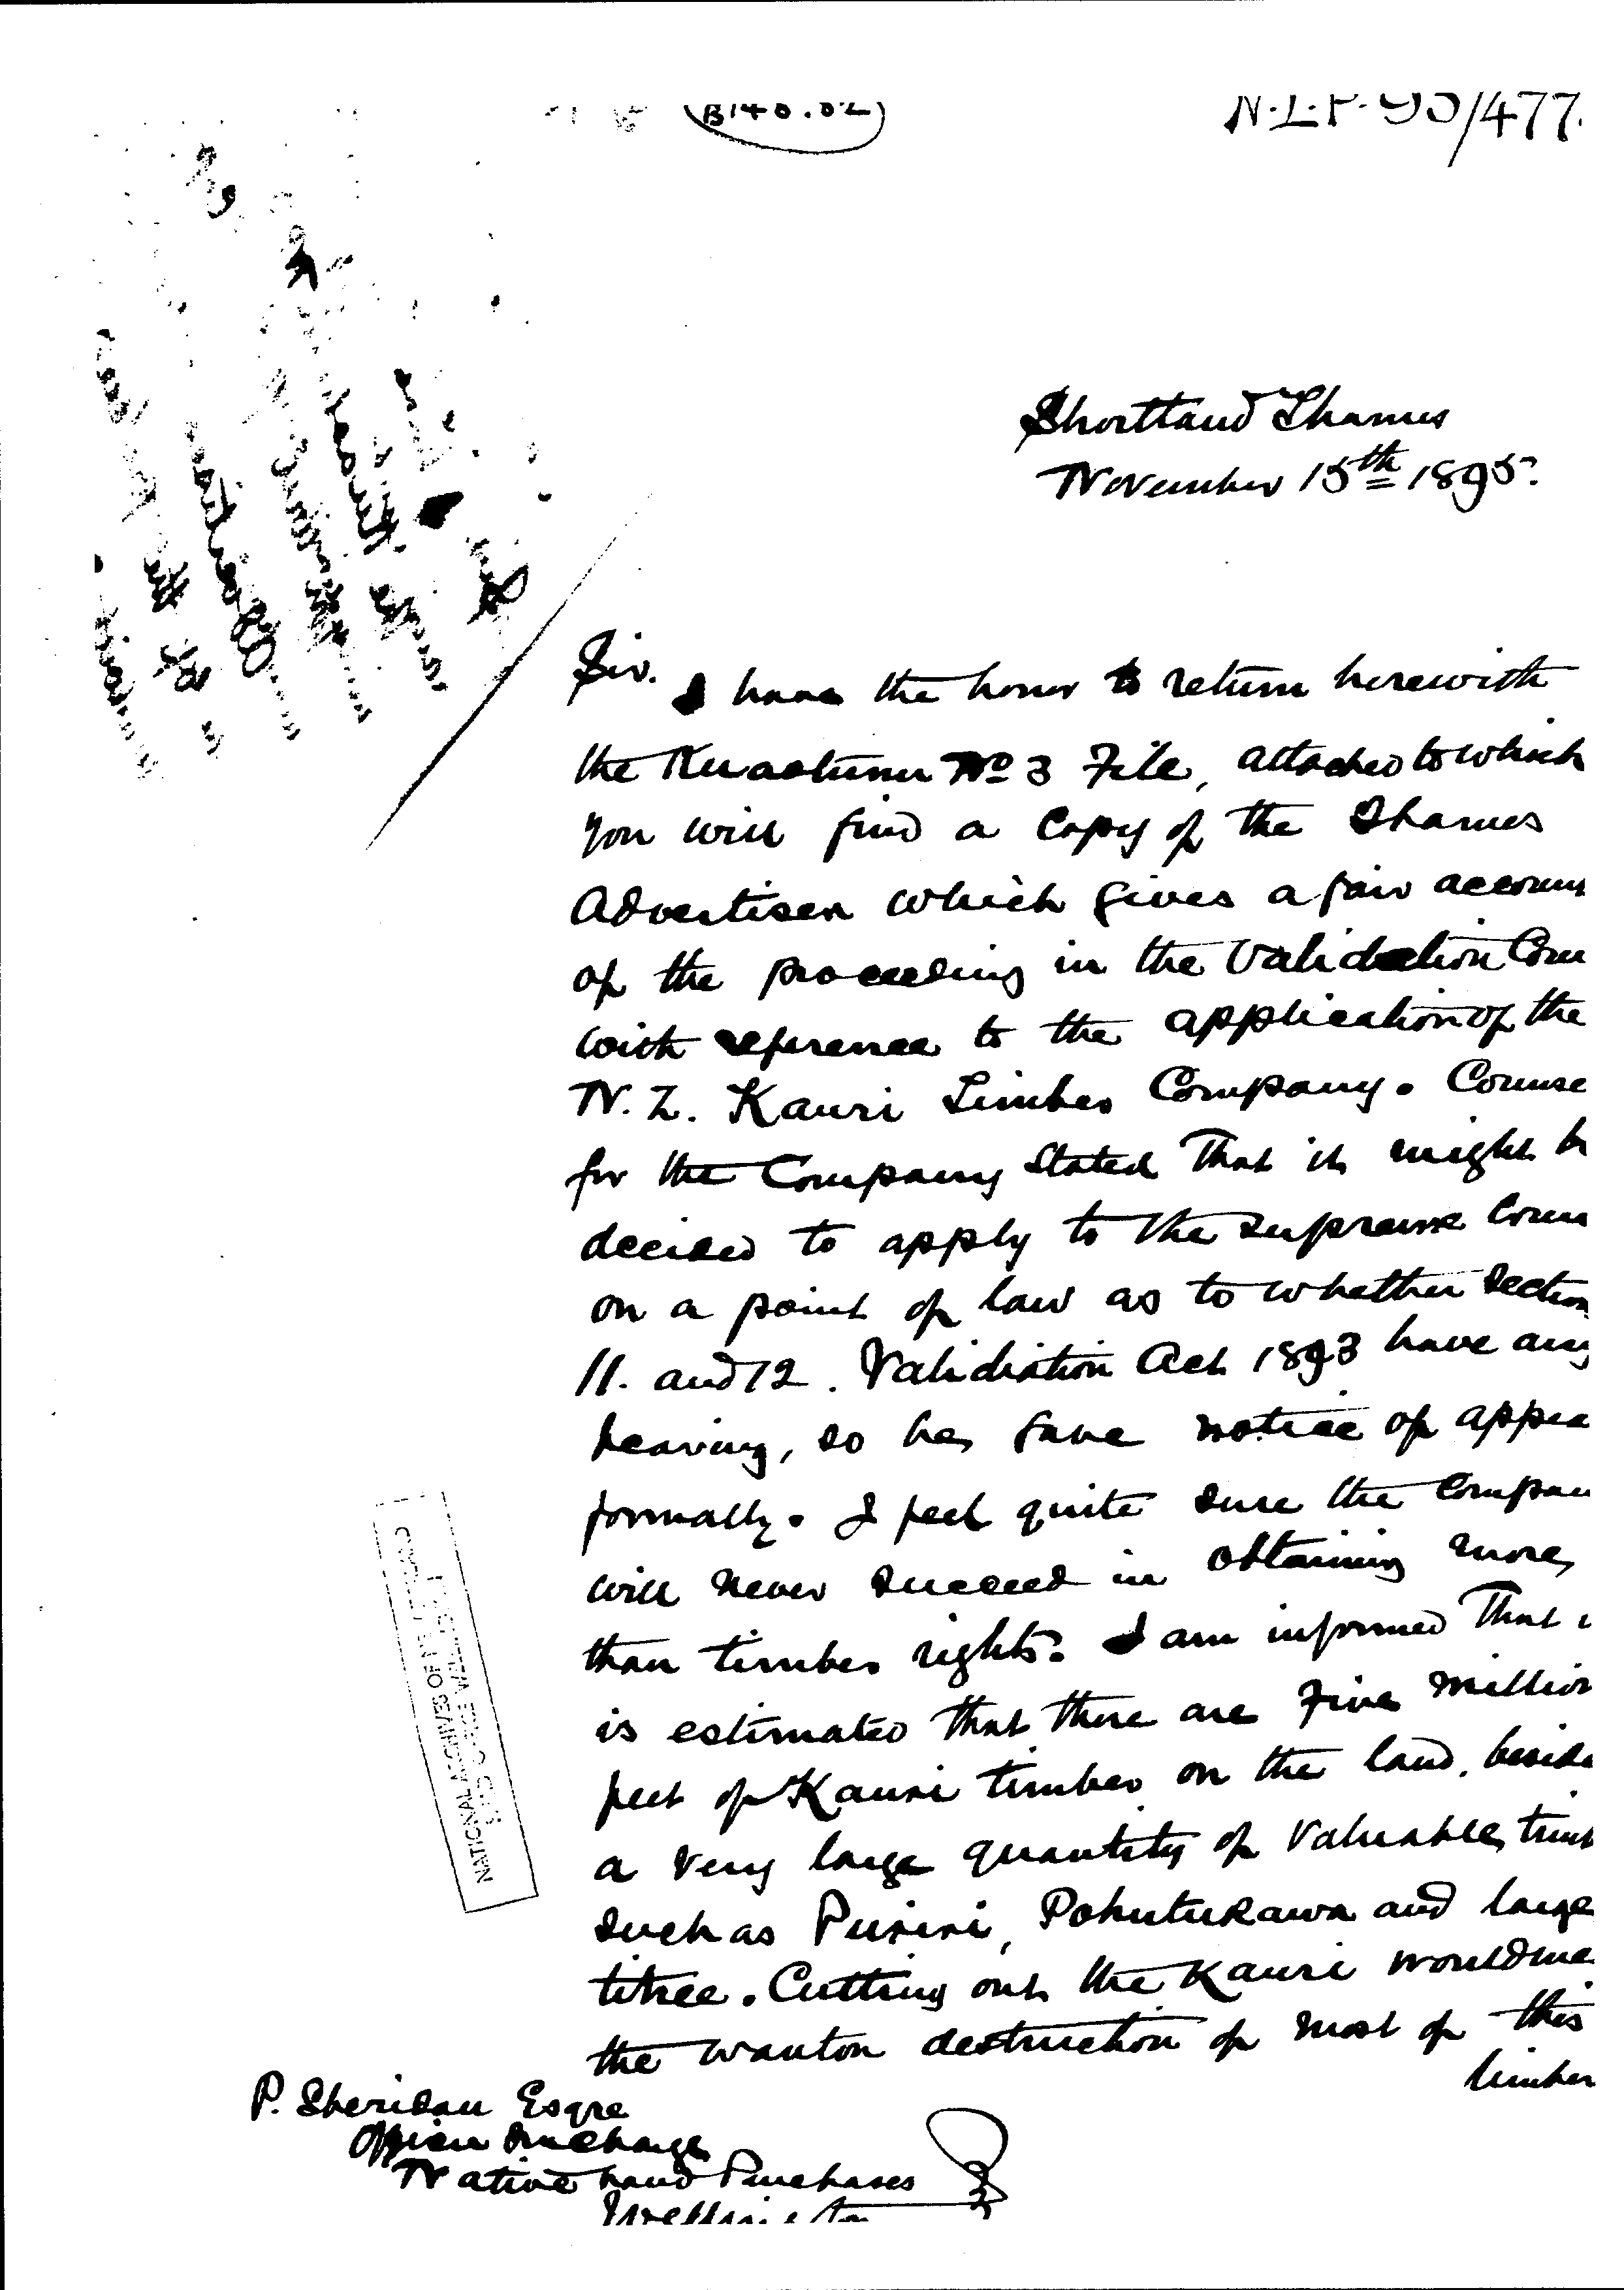 N.L.P. 95/477.
Shortland Thames
November 15th 1895.
Sir.
I have the honor to return herewith
the Kuaotunu No 3 File, attached to which
you will find a Copy of the Thames
Advertiser which gives a fair accoun
of the proceeding in the Validation Cou
with reference to the application of the
N.Z. Kauri Timber Company. Counse
for the Company stated that it might b
decided to apply to the Supreme Cou
on a point of law as to whether Section
11. and 12. Validation Act 1893 have any
bearing, so he gave notice of appea
formally. I feel quite sure the Compan
will never succeed in obtaining more
than timber rights. I am informed that i
is estimated that there are Five million
feet of Kauri timber on the land, beside
a very large quantity of valuable timb
such as Puriri, Pohutukawa and large
titree. Cutting out the Kauri would me
the wanton destruction of most of this
timber
P. Sheridan Esqre
Officer In Charge
Native Land Purchases
Wellington
NATIONAL ARCHIVES OF